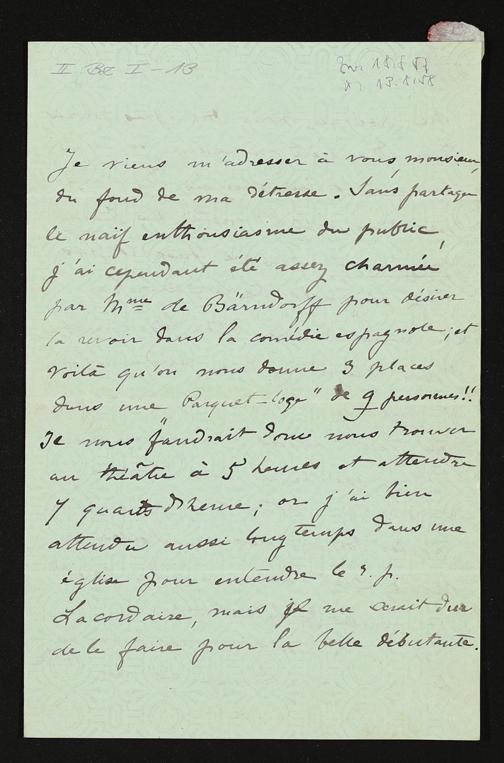 II Bc I - 13
Je viens m'adresser à vous, monsieur,
du fond de ma détresse. Sans partager
le naïf enthousiasme du public,
j'ai cependant été assez charmée
par Mme de Bärndorff pour désirer
la revoir dans la comédie espagnole; et
voilà qu'on nous donne 3 places
dans une "Parquet-loge" de 9 personnes!!
Il nous faudrait donc nous trouver
au théâtre à 5 heures et attendre
7 quarts d'heure; or j'ai bien
attendu aussi longtemps dans une
église pour entendre le r. p.
Lacordaire, mais il me serait dur
de le faire pour la belle débutante.